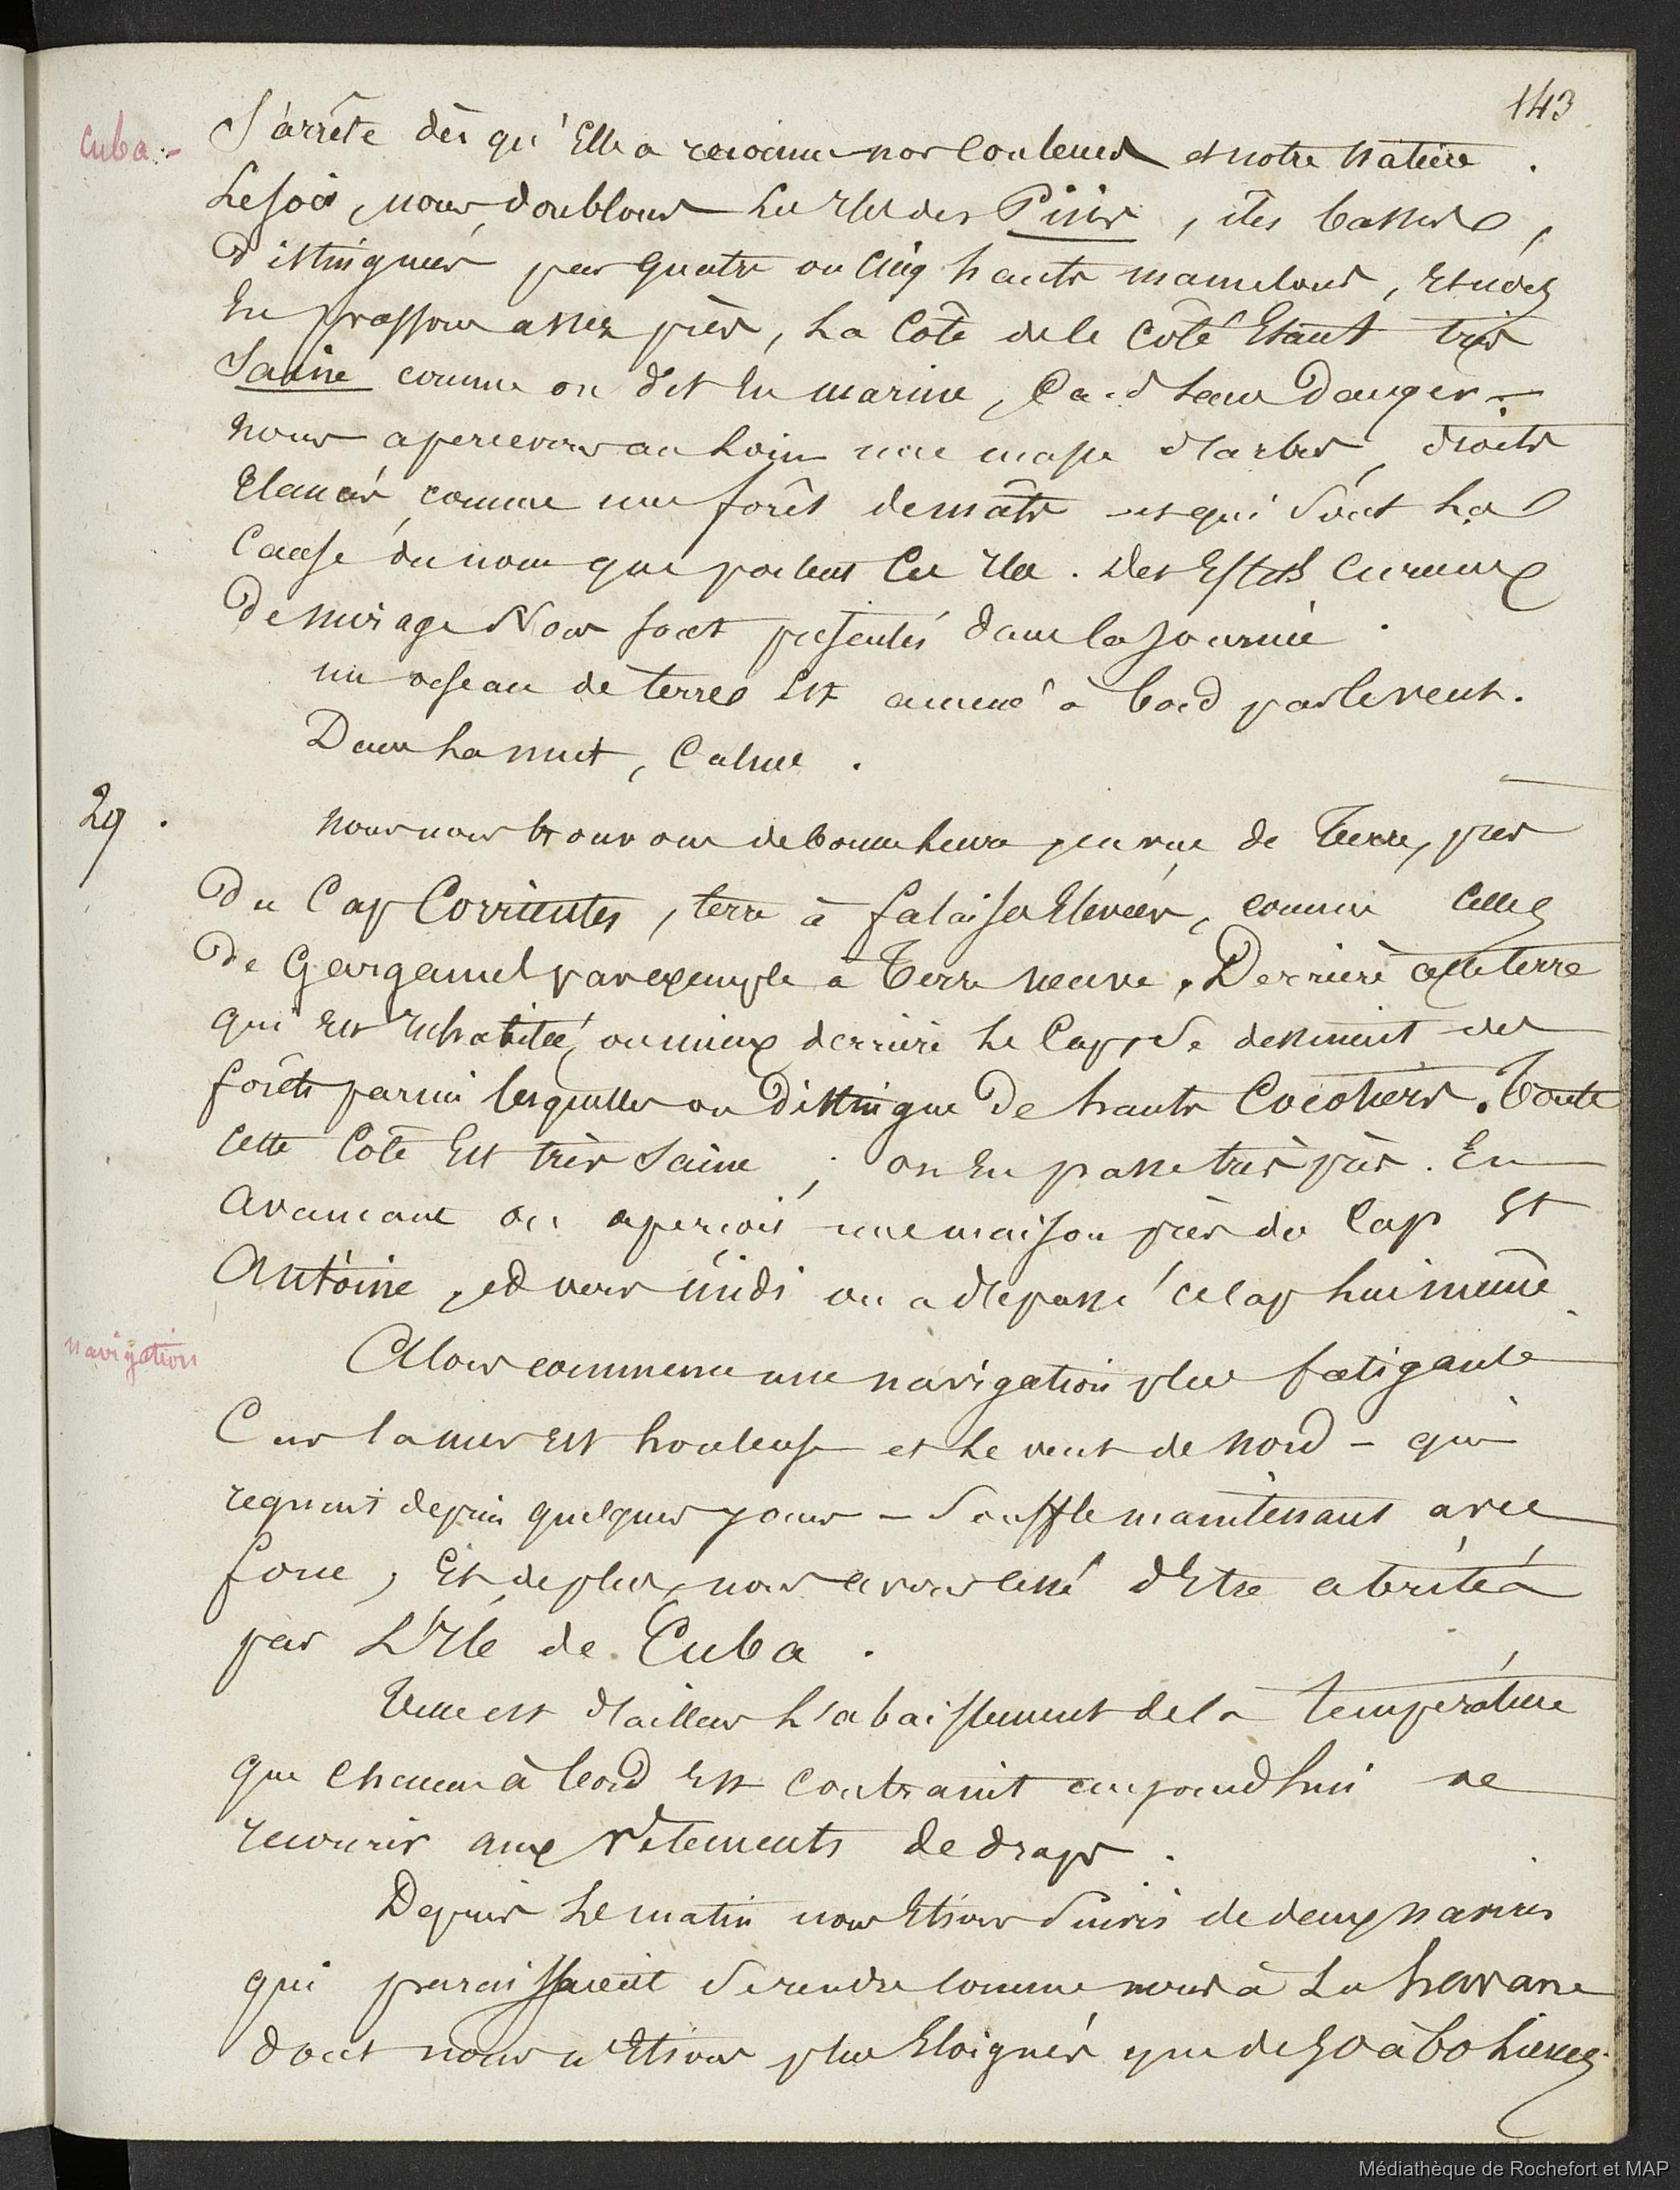 143
Cuba.-
S'arrête dès qu'Elle a reconnu nos Couleurs et notre nature.
Le soir, nous doublons les Iles des Pins, îles basses,
Distinguées par quatre ou Cinq hauts mamelons, et nous
En passons assez près, la Côte de ce côté Etant très
Saine comme on dit En marine, C.a.d sans Danger.-
nous apercevons au loin une masse d'arbres, droits
Elancés, comme une forêt de mâts - et qui sont la
Cause du nom que portent Ces Iles. Des Effets Curieux
De mirage Nous sont présentés dans la Journée.
un oiseau de terre Est amené à bord par le vent.
Dans la nuit, Calme.
29.
nous nous trouvons de bonne heure, en vue de Terre, près
Du Cap Corrientes, terre à falaises Elevées, comme Celles
De Gargamel par exemple à Terre neuve. Derrière cette terre
qui Est inhabitée, ou mieux derrière le Cap, se dessinent des
forêts parmi lesquelles on Distingue De hauts Cocotiers. Toute
Cette Côte Est très Saine ; on En passe très près. En
Avançant on aperçoit une maison près du Cap St
Antoine, et vers midi on a dépassé ce Cap lui même.
navigation
Alors commence une navigation plus fatigante
Car la mer Est houleuse et le vent de Nord - qui
regnait depuis quelques jours - Souffle maintenant avec
force, Et de plus, nous avons cessé d'Etre abrités
par L'Ile de Cuba.
Tel est d'ailleurs l'abaissement de la Température
que chacun à bord Est Contraint aujourd'hui de
recourir aux Vêtements de draps.
Depuis le matin nous Etions Suivis de deux navires
qui paraissaient Se rendre comme nous à La havane
dont nous n'Etions plus Eloignés que de 50 à 60 lieues
Médiathèque de Rochefort et MAP